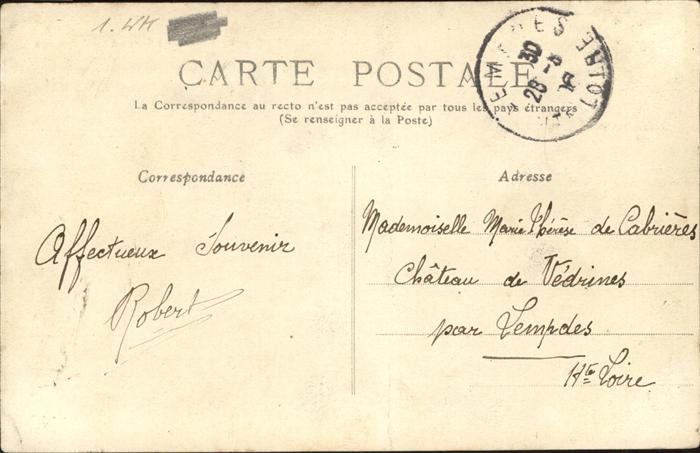 1. WK
CARTE POSTALE
La Correspondance au recto n'est pas acceptée par tous les pays étrangers
(Se renseigner à la Poste)
Correspondance
Affectueux Souvenir
Robert
Adresse
Mademoiselle Marie Thérèse de Cabrières
Château de Védrines
par Lempdes
Hte Loire
LEMPDES
HTE LOIRE